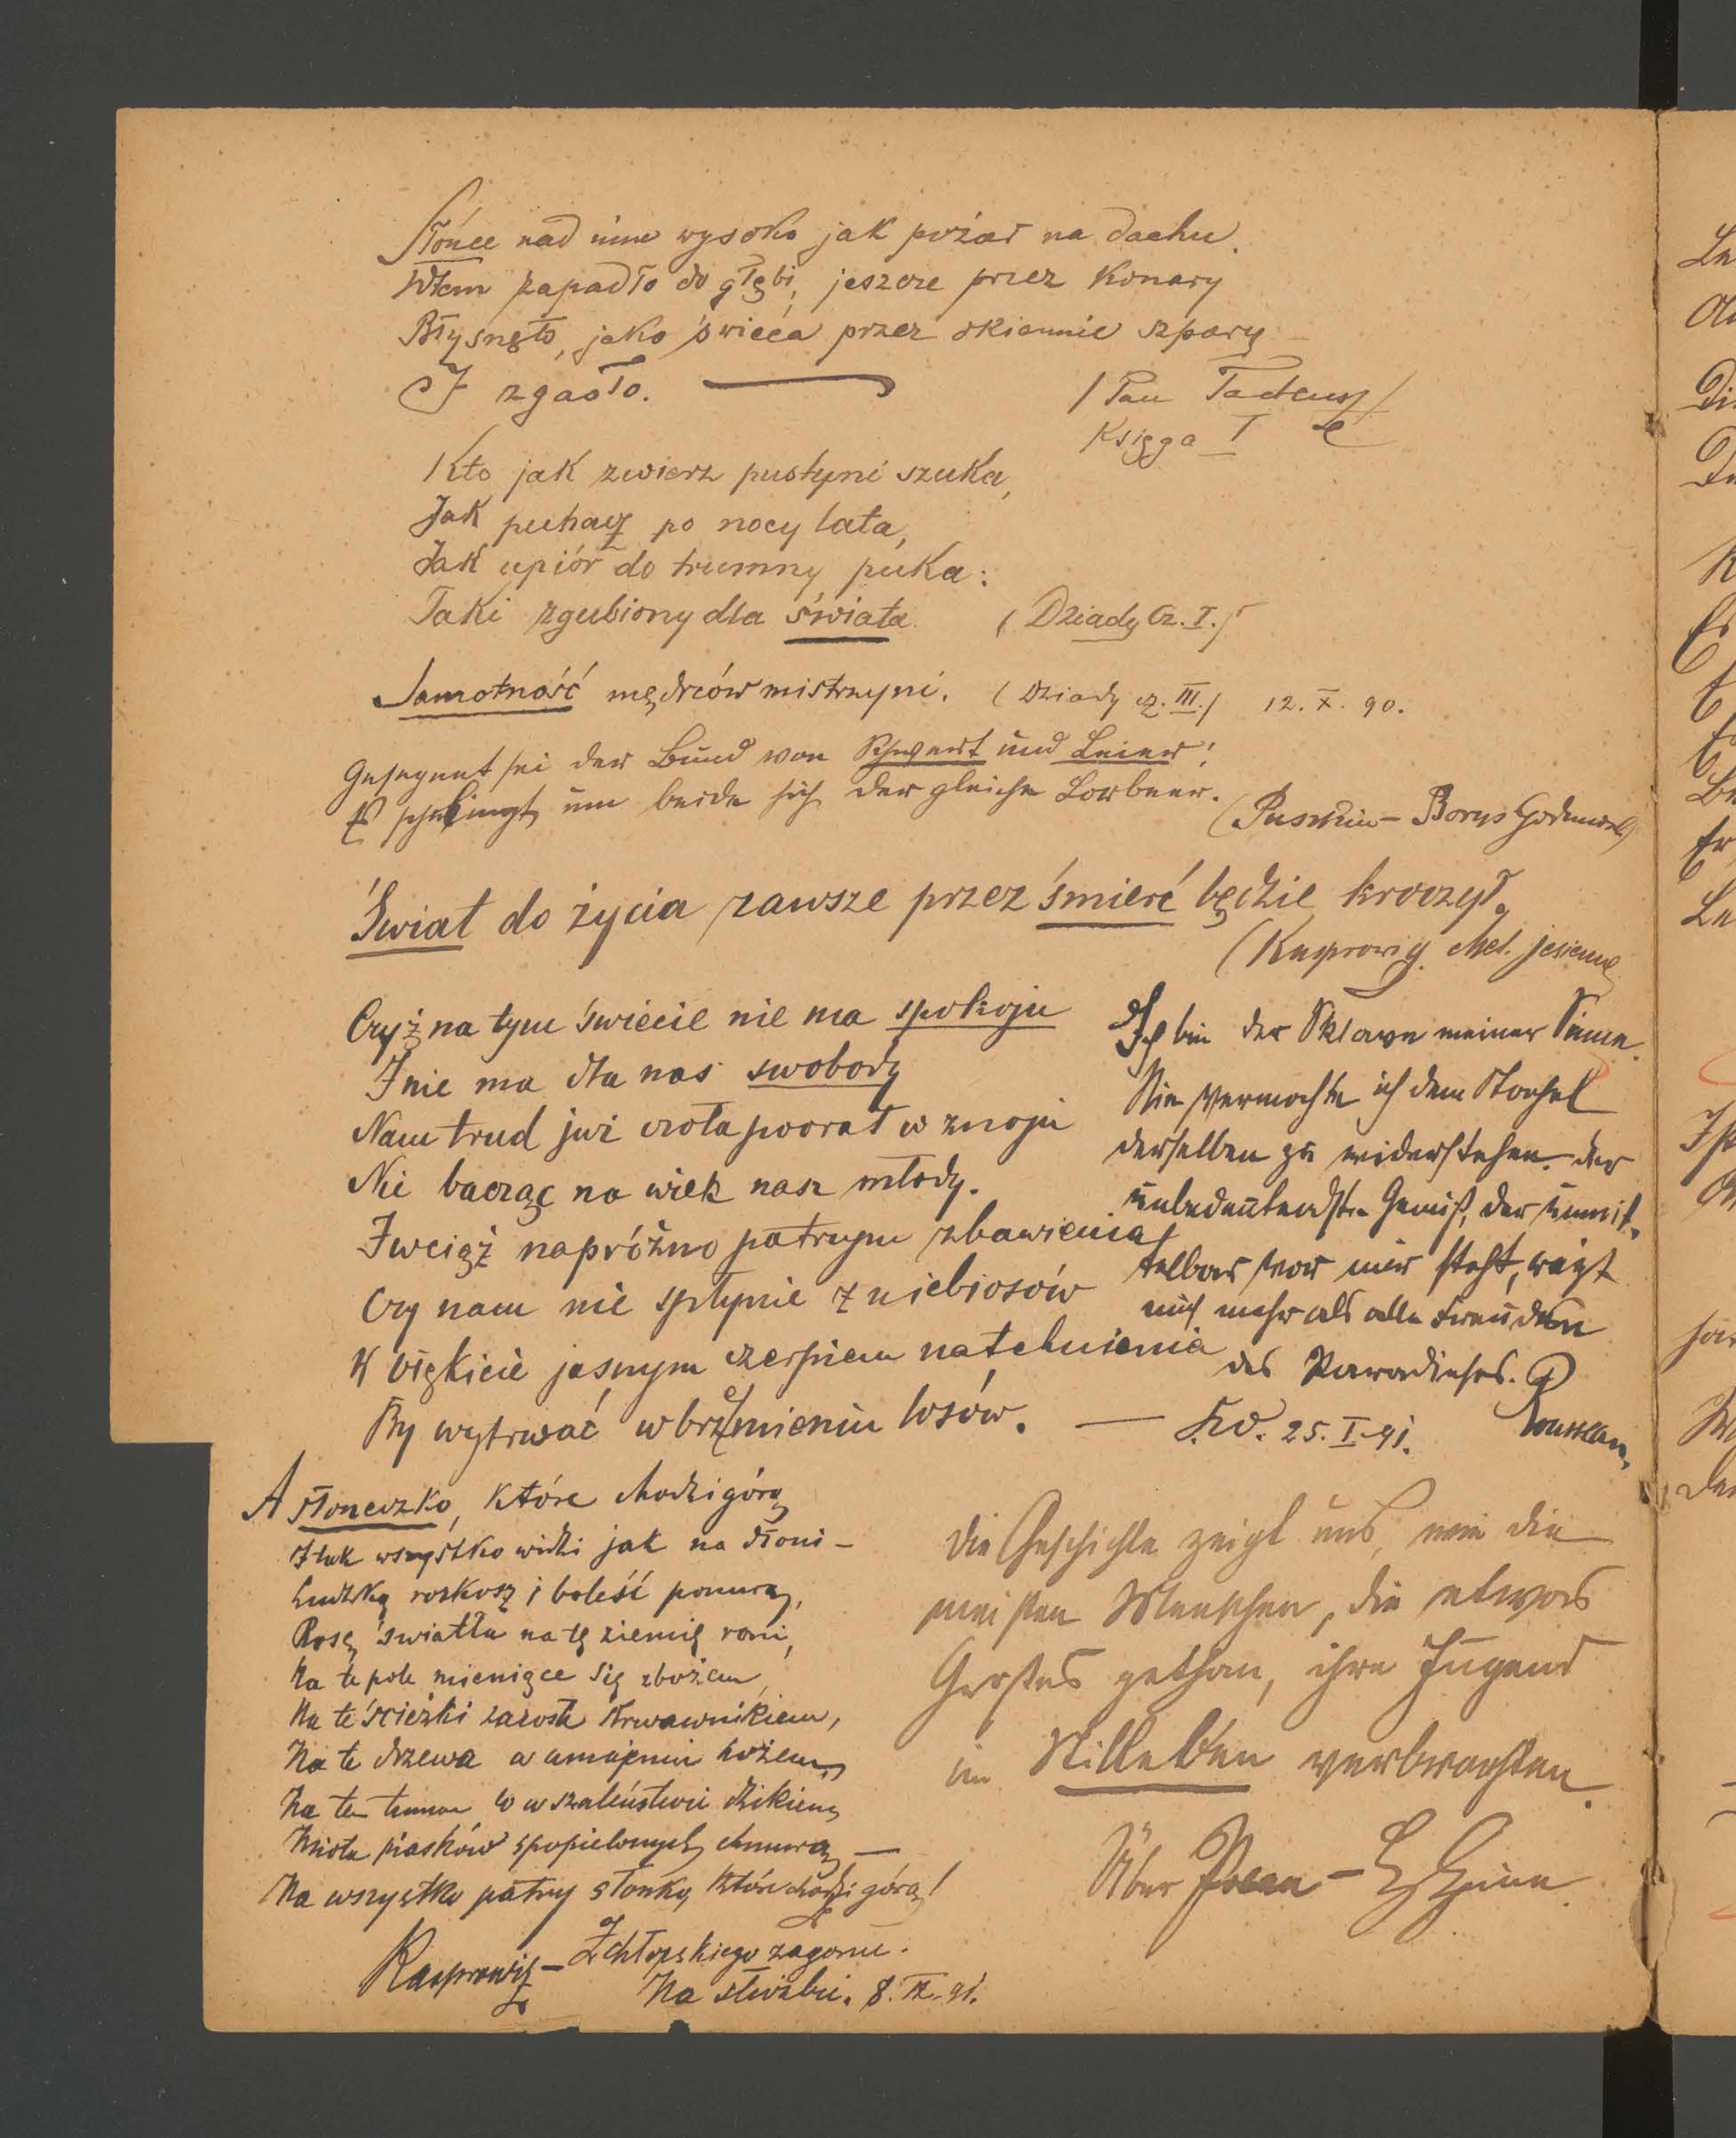 Słońce nad nim wysoko jak pożar na dachu.
Wtem zapadło do głębi, jeszcze przez konary
Błysnęło, jako świéca przez okiennic szpary
I zgasło. —
/ Pan Tadeusz /
Księga I
Kto jak zwierz pustyni szuka,
Jak puhacz po nocy lata,
Jak upiór do trumny puka:
Taki zgubiony dla świata. (Dziady Cz. I.)
Samotność mędrców mistrzyni. (Dziady cz. III.) 12. X. 90.
Gesegnet sei der Bund von Schwert und Leier!
Es schlingt um beide sich der gleiche Lorbeer.
(Puszkin – Borys Godunow)
Świat do życia zawsze przez śmierć będzie kroczył.
(Kasprowicz. Mel. jesienne
Czyż na tym świecie nie ma spokoju
I nie ma dla nas swobody
Nam trud już czoła poorał w znoju
Nie bacząc na wiek nasz młody.
I wciąż napróżno patrzym zbawienia
Czy nam nie spłynie z niebiosów
W błękicie jasnym czerpiem natchnienia
By wytrwać w brzemieniu losów. — 25. I. 91.
Ich bin der Sklave meiner Sinne.
Nie vermochte ich dem Stachel
derselben zu widerstehen. der
unbedeutendste Genuß, der unmit-
telbar vor mir steht, reizt
mich mehr als alle Freuden
des Paradieses.
Rousseau
A słoneczko, które chodzi górą
I tak wszystko widzi jak na dłoni –
Ludzką rozkosz i boleść ponurą,
Rosę światła na tę ziemię roni,
Na te pole mieniące się zbożem,
Na te ścieżki zarosłe murawnikiem,
Na te drzewa w umajeniu hożem,
Na ten tuman co w szaleństwie dzikiem
Miota piasków spopielonych chmurą, —
Na wszystko patrzy słonko, które chodzi górą!
Kasprowicz – Z chłopskiego zagonu.
Na służbie. 8. IX. 91.
die Geschichte zeigt uns, wie die
meisten Menschen, die etwas
Großes gethan, ihre Jugend
im Stilleben verbrachten.
Über Polen – H. Heine.